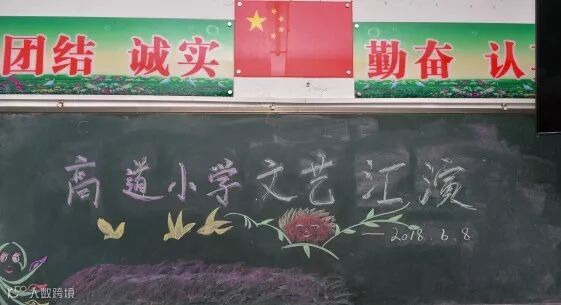 团结 诚实 勤奋 认
高道小学文艺江演
—2018.6.8
大数跨境